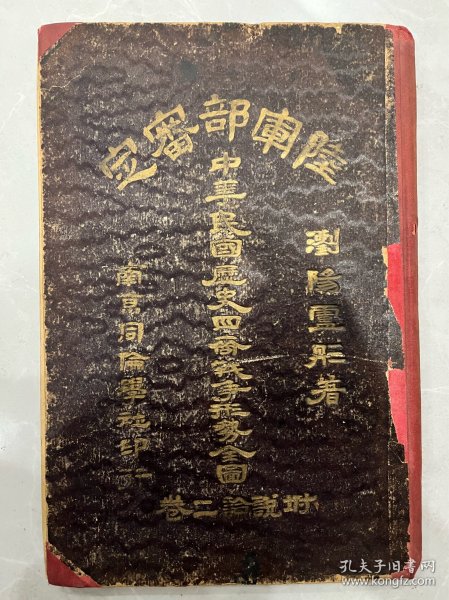 陸軍部審定
瀏陽盧彤著
中華民國歷史四裔戰爭形勢全圖
坿說論二卷
南京同倫學社印行
孔夫子旧书网
www.kongfz.com